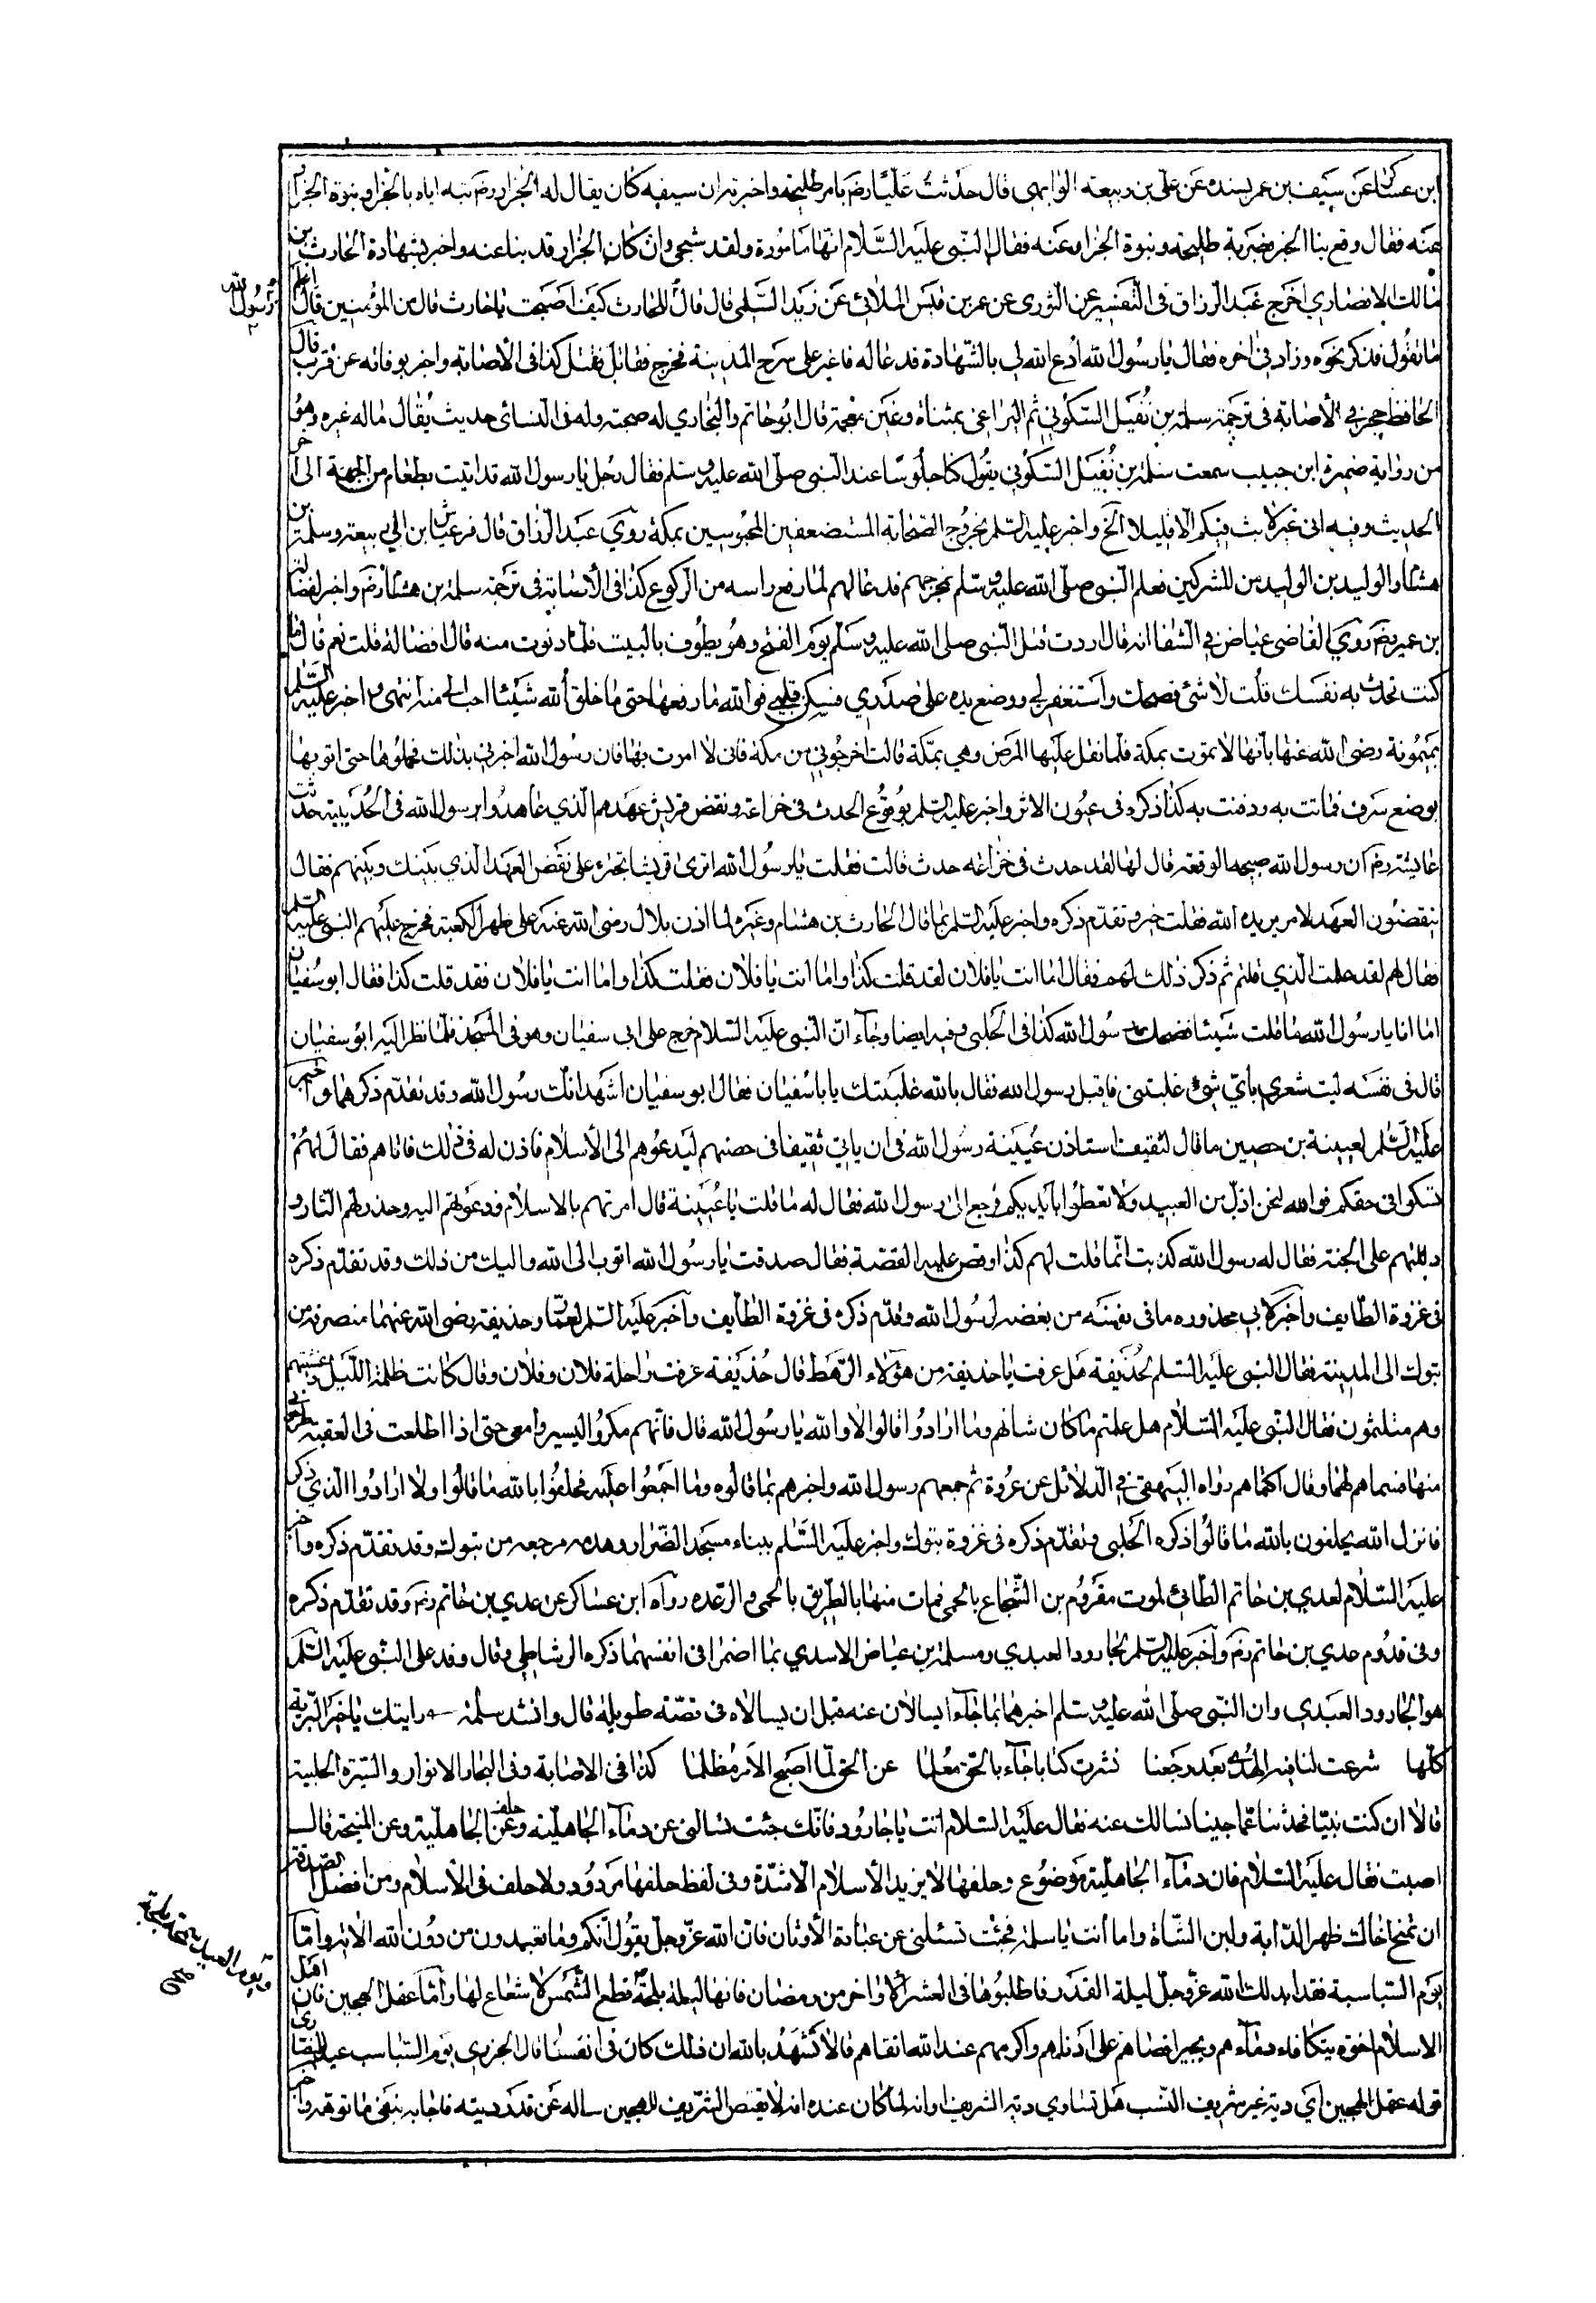 ابن عساكر عن سيف بن عمر بسنده عن علي بن ربيعة الوالبي قال حدثت عليا رضـ بامر طليحة واخبرته ان سيفه كان يقال له الجراز رضـ نبه اياه بالجراز ونبوة الجراز
عنه فقال وقع بنا الخبر ضربة طليحة ونبوة الجراز عنه فقال النبي عليه السلام انها مأمورة ولقد شجى وان كان الجراز قد نبا عنه واخبر بشهادة الحارث بن
مالك الانصاري اخرج عبد الرزاق في التفسير عن الثوري عن عمر بن قيس الملائي عن زيد السلمي قال قال للحارث كيف اصبحت يا حارث قال من المؤمنين قال اعلم
رسول الله
ما تقول فذكر نحوه وزاد في اخره فقال يا رسول الله ادع الله لي بالشهادة فدعا له فاغير على سرح المدينة فخرج فقاتل فقتل كذا في الاصابة واخبر بوفاته عن قرب قال
الحافظ حجر في الاصابة في ترجمة سلمة بن نفيل السكوني ثم التراغمي بمثناة وغين معجمة قال ابو حاتم والبخاري له صحبة وله في النسائي حديث يقال ماله غيره وهو
من رواية ضمرة ابن حبيب سمعت سلمة بن نفيل السكوني يقول كنا جلوسا عند النبي صلى الله عليه وسلم فقال رجل يا رسول الله قد اتيت بطعام من الجنة الى اخر
الحديث وفيه اني غير لابث فيكم الا قليلا الخ واخبر عليه السلم بخروج الصحابة المستضعفين المحبوسين بمكة روي عبد الرزاق قال فر عياش بن ابي ربيعة وسلمة بن
هشام والوليد بن الوليد من المشركين فعلم النبي صلى الله عليه وسلم بمخرجهم فدعا لهم لما رفع راسه من الركوع كذا في الاصابة في ترجمة سلمة بن هشام رضـ واخبر لفضالة
بن عمير رضـ روي القاضي عياض في الشفا انه قال اردت قتل النبي صلى الله عليه وسلم يوم الفتح وهو يطوف بالبيت فلما دنوت منه قال افضالة قلت نعم قال ما
كنت تحدث به نفسك قلت لا شئ فضحك واستغفر لي ووضع يده على صدري فسكن قلبي فوالله ما رفعها حتى ما خلق الله شيئا احب الي منه انتهى واخبر عليه السلم
ميمونة رضي الله عنها بانها لا تموت بمكة فلما ثقل عليها المرض وهي بمكة قالت اخرجوني من مكة فاني لا اموت بها فان رسول الله اخبرني بذلك فحملوها حتى اتو بها
بوضع سرف فماتت به ودفنت به كذا ذكره في عيون الاثر واخبر عليه السلم بوقوع الحدث في خزاعة ونقض قريش عهدهم الذي عاهدوا رسول الله في الحديبية حدثت
عايشة رضـ ان رسول الله صبيحة الوقعة قال لها لقد حدث في خزاعة حدث قالت فقلت يا رسول الله اترى قريشا تجترء على نقض العهد الذي بينك وبينهم فقال
ينقضون العهد لامر يريده الله فقلت خير وتقدم ذكره واخبر عليه السلم بما قال الحارث بن هشام وغيره لما اذن بلال رضي الله عنه على ظهر الكعبة فخرج عليهم النبي عليه السلم
فقال لهم لقد علمت الذي قلتم ثم ذكر ذلك لهم فقال اما انت يا فلان لقد قلت كذا واما انت يا فلان فقلت كذا واما انت يا فلان فقد قلت كذا فقال ابو سفيان
اما انا يا رسول الله ما قلت شيئا فضحك رسول الله كذا في الحلبي وفيه ايضا وجاء ان النبي عليه السلام خرج على ابي سفيان وهو في المسجد فلما نظر اليه ابو سفيان
قال في نفسه ليت شعري باي شئ غلبتني فاقبل رسول الله فقال بالله غلبتك يا با سفيان فقال ابو سفيان اشهد انك رسول الله وقد تقدم ذكرهما واخبر
عليه السلم لعيينة بن حصين ما قال لثقيف استاذن عيينة رسول الله في ان ياتي ثقيفا في حصنهم ليدعوهم الى الاسلام فاذن له في ذلك فاتاهم فقال لهم
تمسكوا في حقكم فوالله لنحن اذل من العبيد ولا تعطوا بايديكم فرجع الى رسول الله فقال له ما قلت يا عيينة قال امرتهم بالاسلام ودعوتهم اليه وحذرتهم النار و
دللتهم على الجنة فقال له رسول الله كذبت انما قلت لهم كذا وقص عليه القصة فقال صدقت يا رسول الله اتوب الى الله واليك من ذلك وقد تقدم ذكره
في غزوة الطايف واخبر لابي محذوره ما في نفسه من بغضه لرسول الله وتقدم ذكره في غزوة الطايف واخبر عليه السلم لعمار وحذيفة رضي الله عنهما منصرفه من
تبوك الى المدينة فقال النبي عليه السلم لحذيفة هل عرفت يا حذيفة من هؤلاء الرهط قال حذيفة عرفت راحلة فلان وفلان وقال كانت ظلمة الليل وغشيتهم
وهم متلثمون فقال النبي عليه السلام هل علمتم ما كان شانهم وما ارادوا قالوا لا والله يا رسول الله قال فانهم مكروا ليسيروا معي حتى اذا اطلعت في العقبة طرحوني
منها فسماهم لهما وقال اكتماهم رواه البيهقي في الدلائل عن عروة ثم جمعهم رسول الله واخبرهم بما قالوه وما اجمعوا عليه فحلفوا بالله ما قالوا ولا ارادوا الذي ذكر
فانزل الله يحلفون بالله ما قالوا ذكره الحلبي وتقدم ذكره في غزوة تبوك واخبر عليه السلم ببناء مسجد الضرار وهدمه مرجعه من تبوك وقد تقدم ذكره واخبر
عليه السلام لعدي بن حاتم الطائي لموت بن الشجاع بالحمى فمات منها بالطريق بالحمى والرعده رواه ابن عساكر عن عدي بن حاتم رضـ وقد تقدم ذكره
وفي قدوم عدي بن حاتم رضـ واخبر عليه السلم لجارود العبدي ومسلمة بن عياض الاسدي بما اضمرا في انفسهما ذكره الرشاطي وقال وفد على النبي عليه السلم
هو الجارود العبدي وان النبي صلى الله عليه وسلم اخبرهما بما جاءا يسالان عنه قبل ان يسالاه في قصة طويلة قال وانشد سلمة رايتك يا خير البرية
كلها شرعت لنا فيه الهدى بعد رجعنا نشرت كتابا جاء بالحق معلما عن الحق لما اصبح الامر مظلما كذا في الاصابة وفي البحار الانوار والسيرة الحلبية
قالا ان كنت نبيا فحدثنا عما جينا نسالك عنه فقال عليه السلام انت يا جارود فانك جئت تسالني عن دماء الجاهلية وعن حلف الجاهلية وعن المنيحة قال
اصبت فقال عليه السلام فان دماء الجاهلية موضوع وحلفها لا يزيد الاسلام الا شدة وفي لفظ حلفها مردود ولا حلف في الاسلام ومن افضل الصدقة
ان تمنح اخاك ظهر الدابة ولبن الشاة واما انت يا سلمة فجئت تسئلني عن عبادة الاوثان فان الله عز وجل يقول انكم وما تعبدون من دون الله الاية واما
يوم السباسبة فقد ابدلك الله عز وجل ليلة القدر فاطلبوها في العشر الاواخر من رمضان فانها ليلة بلجة قطع الشمس لا شعاع لها واما عقل الهجين فان اهل
الاسلام اخوة يتكافاء دماءهم ويجير اقصاهم على ادناهم واكرمهم عند الله اتقاهم قالا نشهد بالله ان ذلك كان في انفسنا قال الجزري يوم السباسب عيد النصارى
قوله عقل الهجين اي دية غير شريف النسب هل تساوي دية الشريف وانه لما كان عنده انه لا يقتص الشريف للهجين ساله عن قدر ديته فاجابه بنفي ما توهمه واخبر